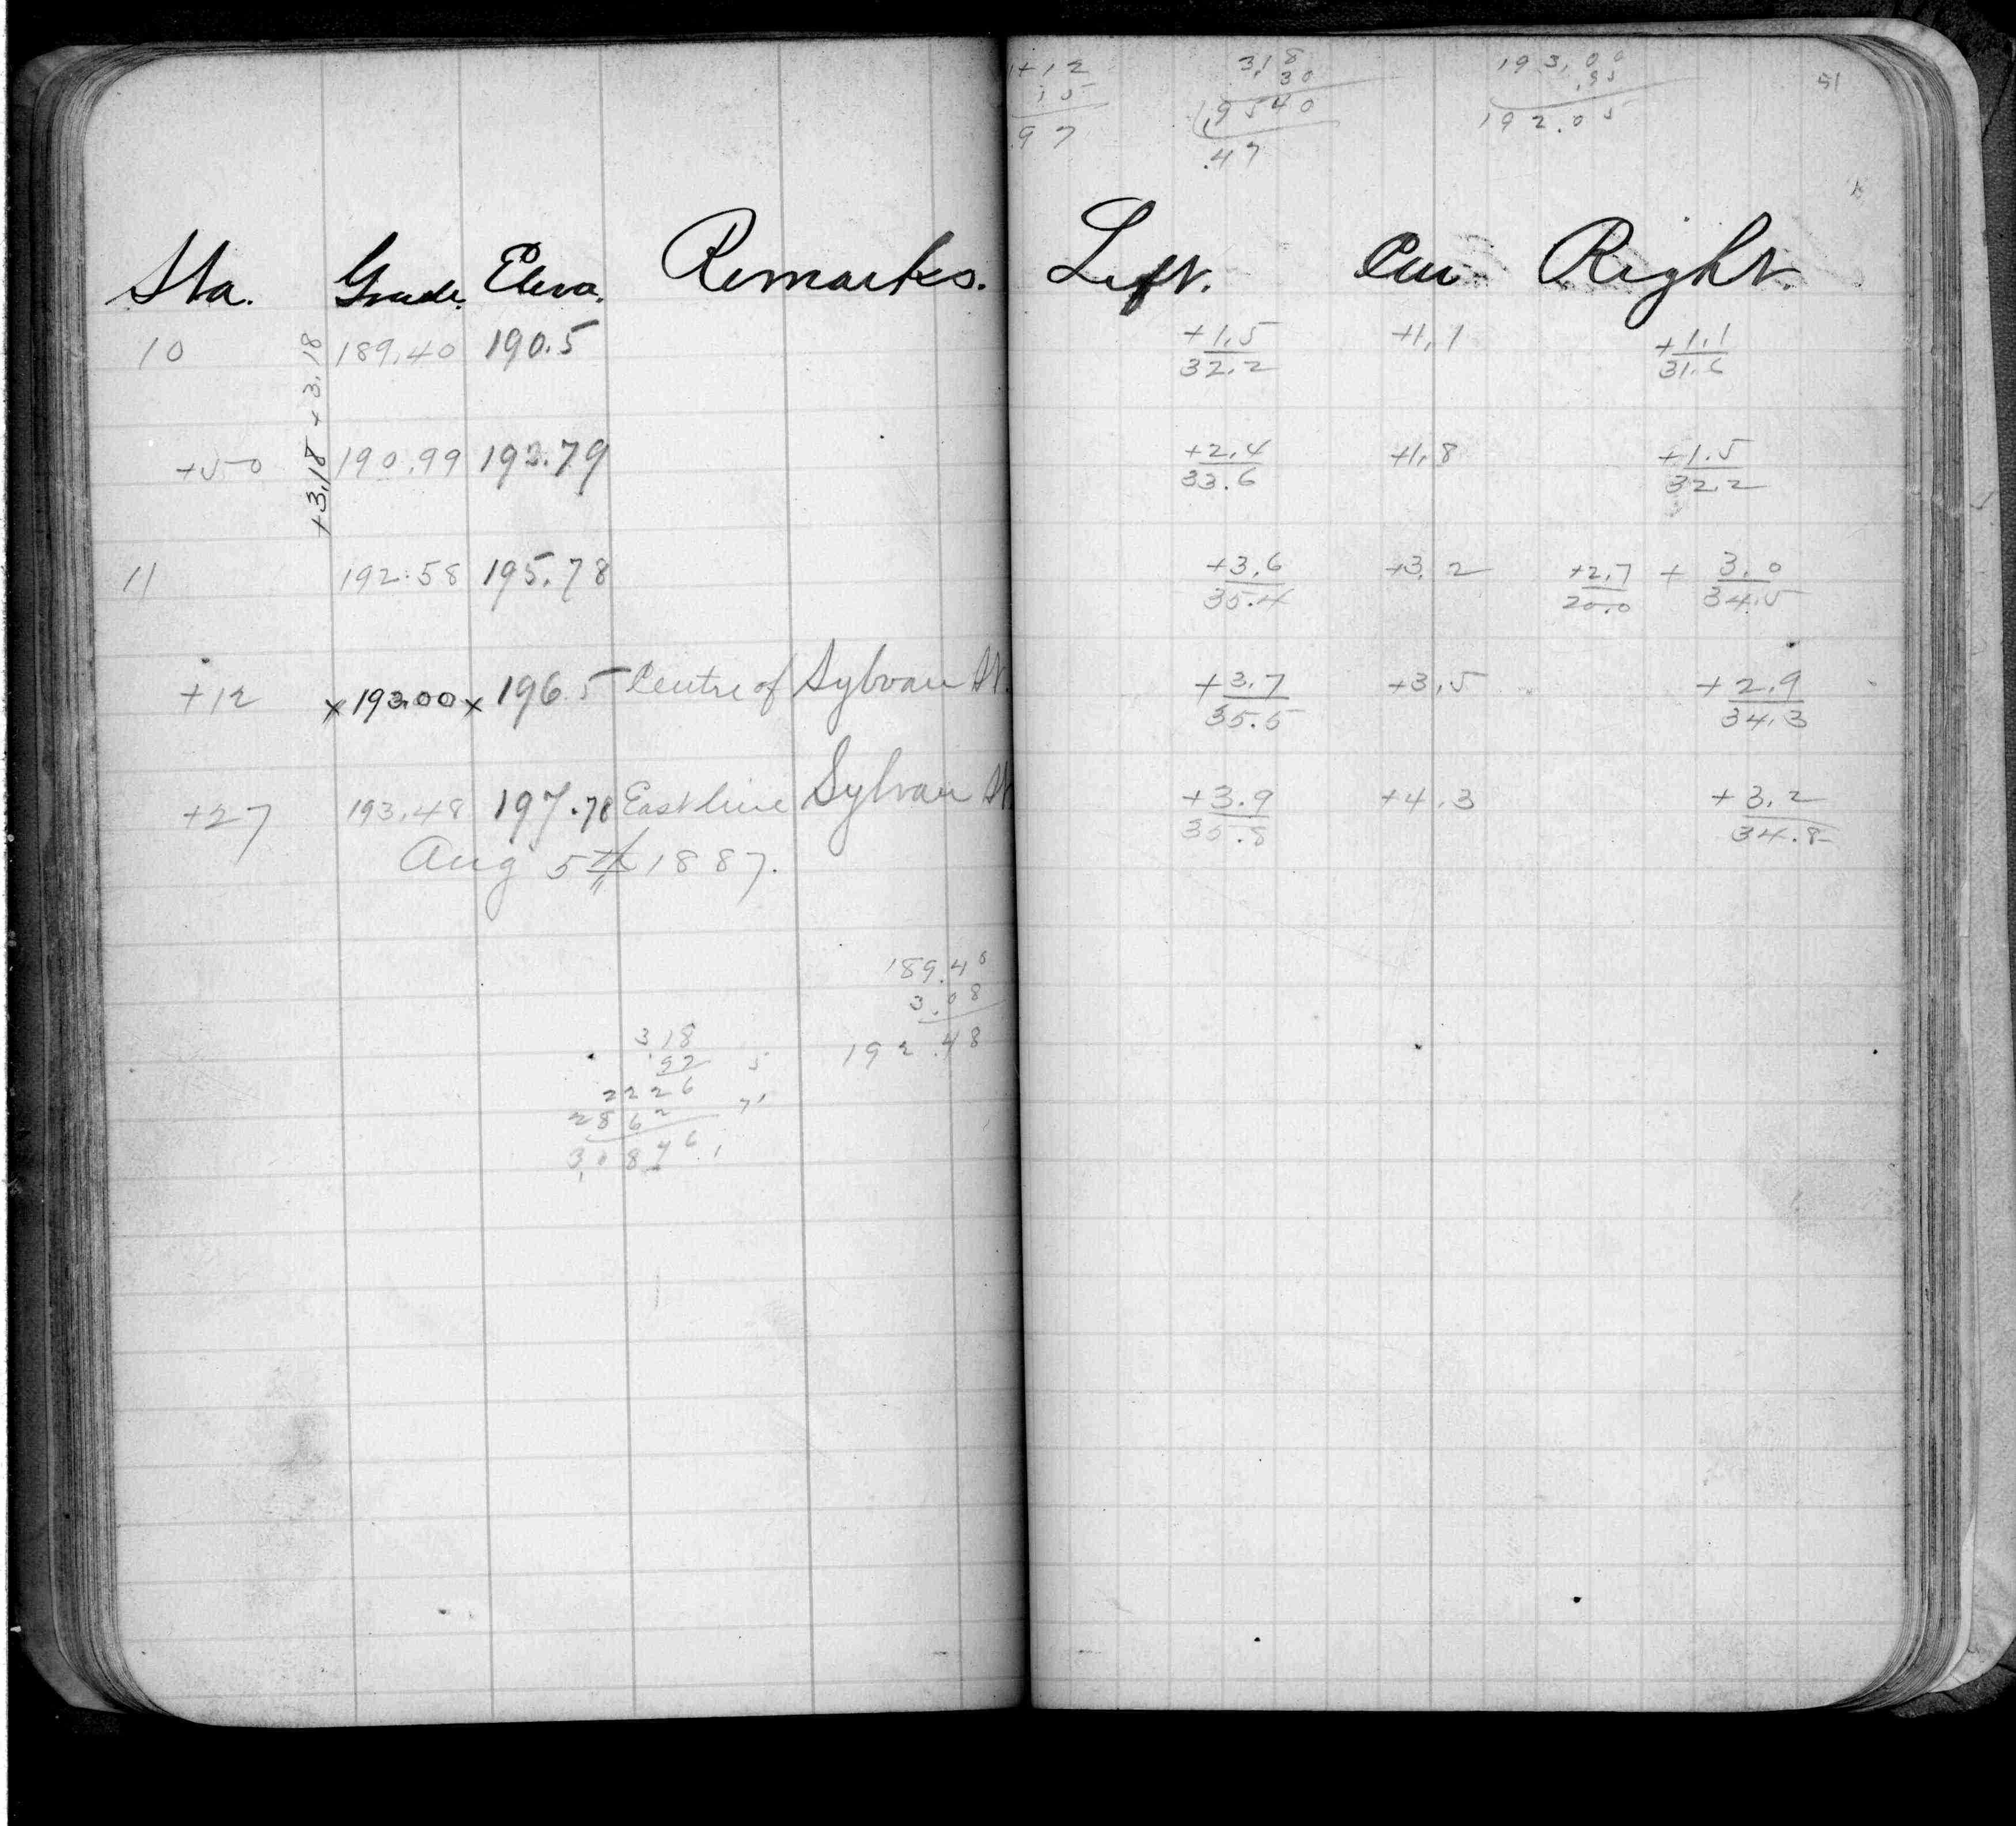 Sta. Grade. Eleva. Remarks.
10 189.40 190.5
+3.18 +3.18
+50 190.99 192.79
11 192.58 195.78
+12 x 193.00 x 196.5 Centre of Sylvan St.
+27 193.48 197.78 East line Sylvan St
Aug 5th 1887.
189.40
3.08
192.48
3.18
.97
2226
2862
3.0846
1+12
15
97
3.18
30
.9540
.47
193.00
.95
192.05
51
Left. Cen Right.
+1.5 +1.1 +1.1
32.2 31.6
+2.4 +1.8 +1.5
33.6 32.2
+3.6 +3.2 +2.7 + 3.0
35.4 20.0 34.5
+3.7 +3.5 +2.9
35.5 34.3
+3.9 +4.3 +3.2
35.8 34.8